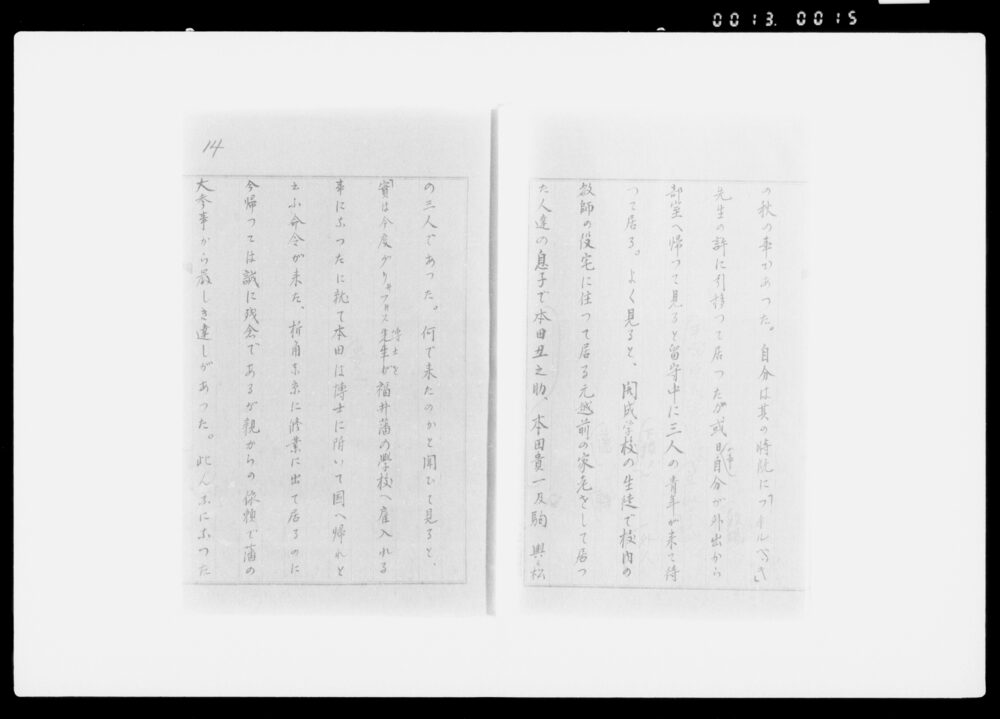 0013.0015
の秋の事であつた。自分は其の時既に「フ[ル]ベッキ」
先生の許に引移つて居つたが或日自分が外出から
部室へ帰つて見ると留守中に三人の青年が来て待
つて居る。よく見ると、開成学校の生徒で校内の
教師の役宅に住つて居る元越前の家老をして居つ
た人達の息子で本田丑之助、本田貴一及駒 與松
14
の三人であつた。何で来たのかと聞ひて見ると、
「實は今度グリッフヰス先生が福井藩の學校へ雇入れる
博士と
事になつたに就て本田は博士に附いて国へ帰れと
云ふ命令が来た、折角東京に修業に出て居るのに
今帰つては誠に残念であるが親からの依頼で藩の
大参事から厳しき達しがあつた。此んなになつた